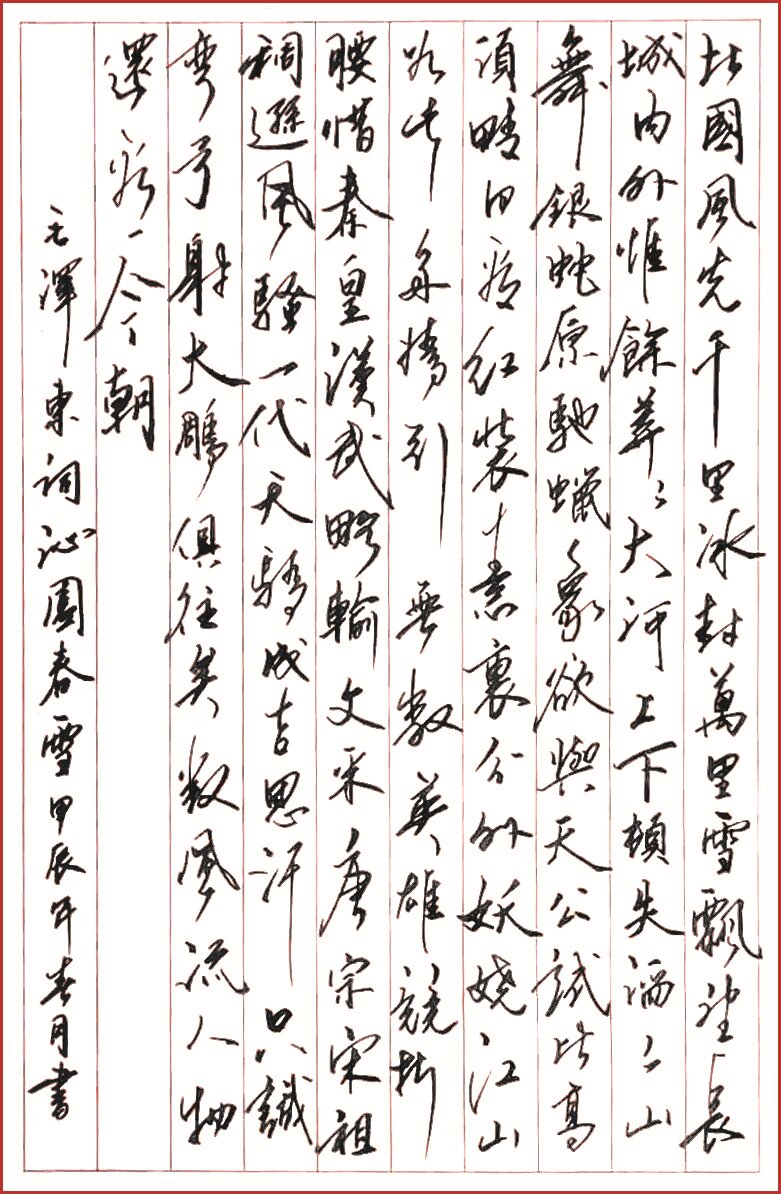 北國風光千里冰封萬里雪飄望長
城內外惟餘莽莽大河上下頓失滔滔山
舞銀蛇原馳蠟象欲與天公試比高
須晴日看紅裝素裹分外妖嬈江山
如此多嬌引無數英雄競折
腰惜秦皇漢武略輸文采唐宗宋祖
稍遜風騷一代天驕成吉思汗只識
彎弓射大鵰俱往矣數風流人物
還看今朝
毛澤東詞沁園春雪甲辰年春月書